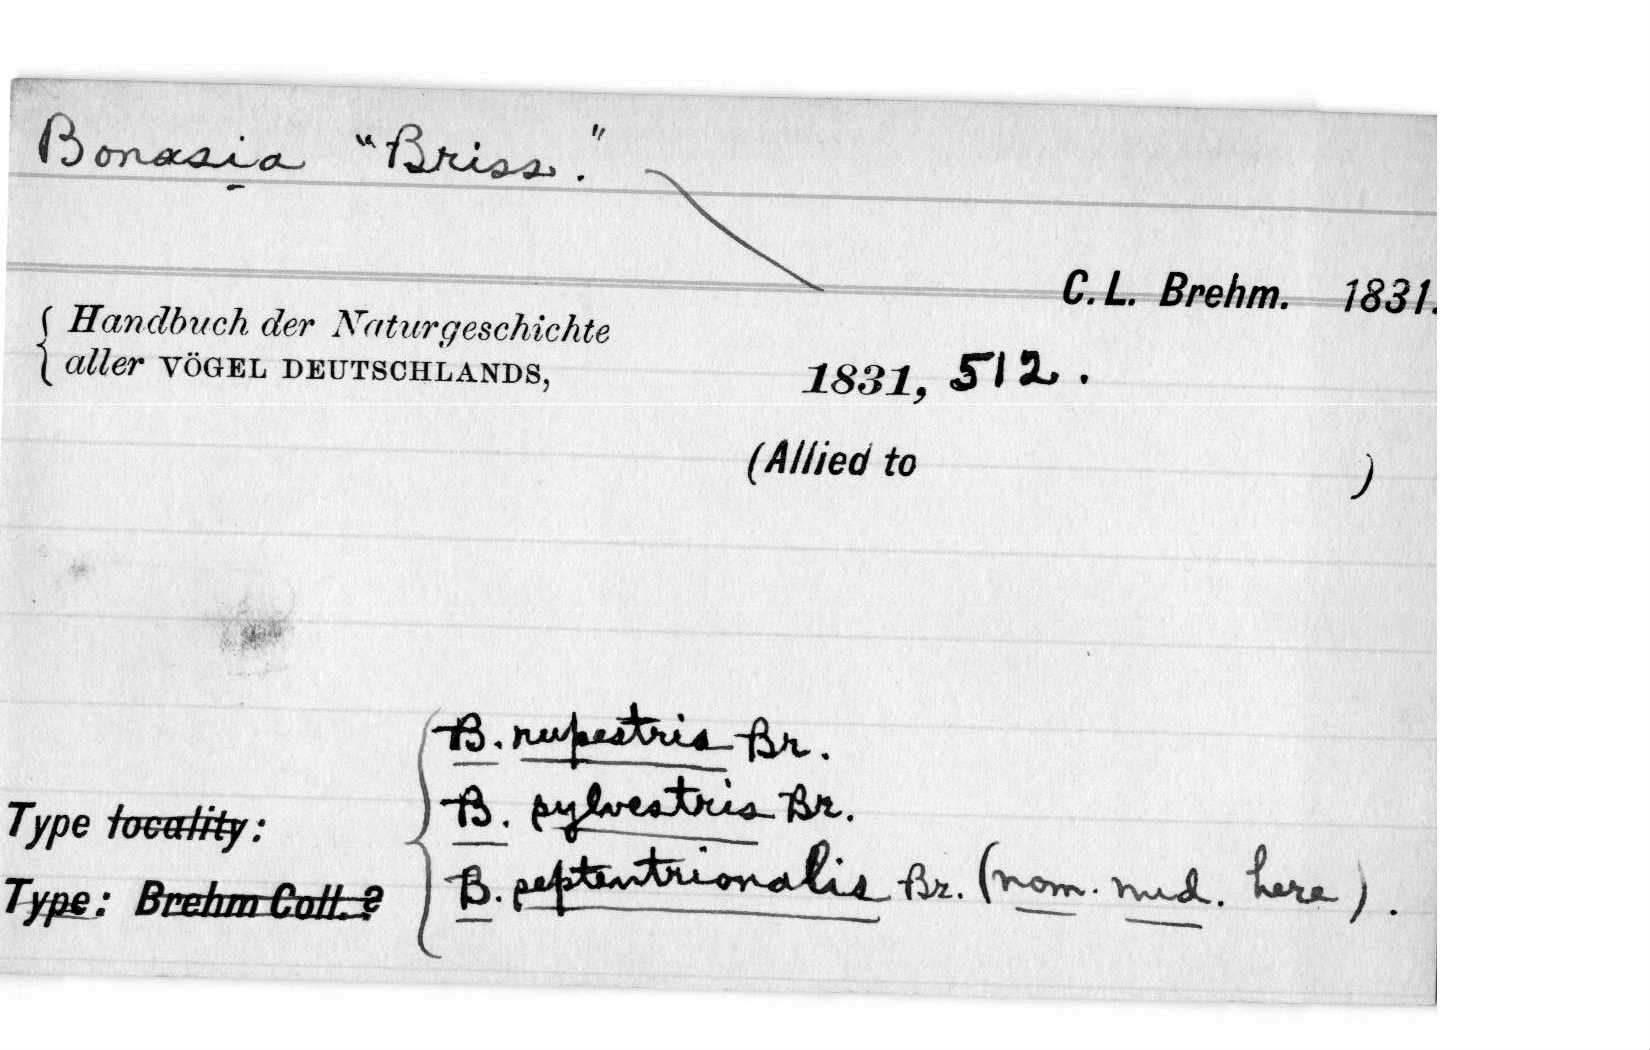 Bonasia "Briss."
C. L. Brehm. 1831.
Handbuch der Naturgeschichte
aller VÖGEL DEUTSCHLANDS,
1831, 512.
(Allied to )
B. rupestris Br.
B. sylvestris Br.
Type locality:
B. septentrionalis Br. (nom. nud. here).
Type: Brehm Coll. ?